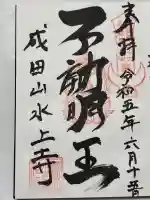 奉拝 令和五年六月十五日
不動明王
成田山水上寺